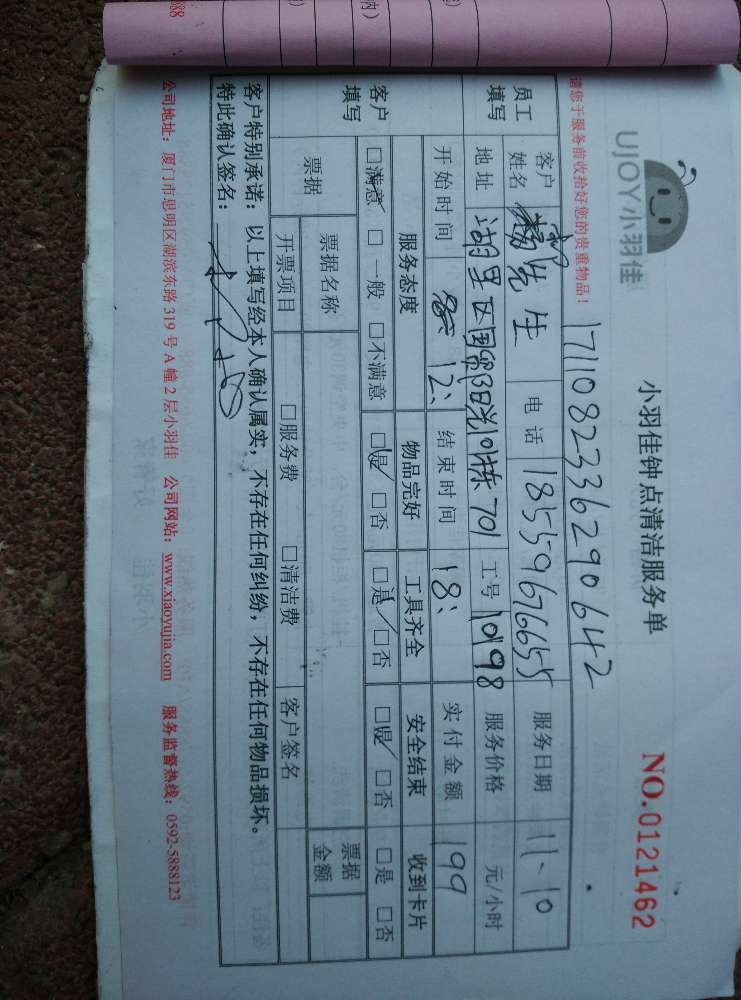 UJOY小羽佳
小羽佳钟点清洁服务单
NO.0121462
请您于服务前收拾好您的贵重物品！
1711082336290642
员工填写
客户姓名 先生 电话 18559676655 服务日期 11、10
地址 湖里区国贸阳光 栋701 工号 10198 服务价格 元/小时
开始时间 12： 结束时间 18： 实付金额 199
客户填写
服务态度 物品完好 工具齐全 安全结束 收到卡片
□满意 □一般 □不满意 □是 □否 □是 □否 □是 □否 □是 □否
票据 票据名称 票据金额
开票项目 □服务费 □清洁费 客户签名
客户特别承诺：以上填写经本人确认属实，不存在任何纠纷，不存在任何物品损坏。
特此确认签名：
公司地址：厦门市思明区湖滨东路319号A幢2层小羽佳 公司网站：www.xiaoyujia.com 服务监督热线：0592-5888123